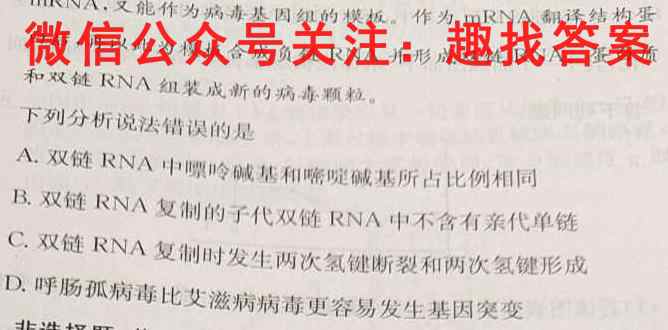 mRNA,又能作为病毒基因组的模板。作为 mRNA 翻译结构蛋
微信公众号关注:趣找答案
和双链 RNA 组装成新的病毒颗粒。
下列分析说法错误的是
A. 双链 RNA 中嘌呤碱基和嘧啶碱基所占比例相同
B. 双链 RNA 复制的子代双链 RNA 中不含有亲代单链
C. 双链 RNA 复制时发生两次氢键断裂和两次氢键形成
D. 呼肠孤病毒比艾滋病病毒更容易发生基因突变
非选择题